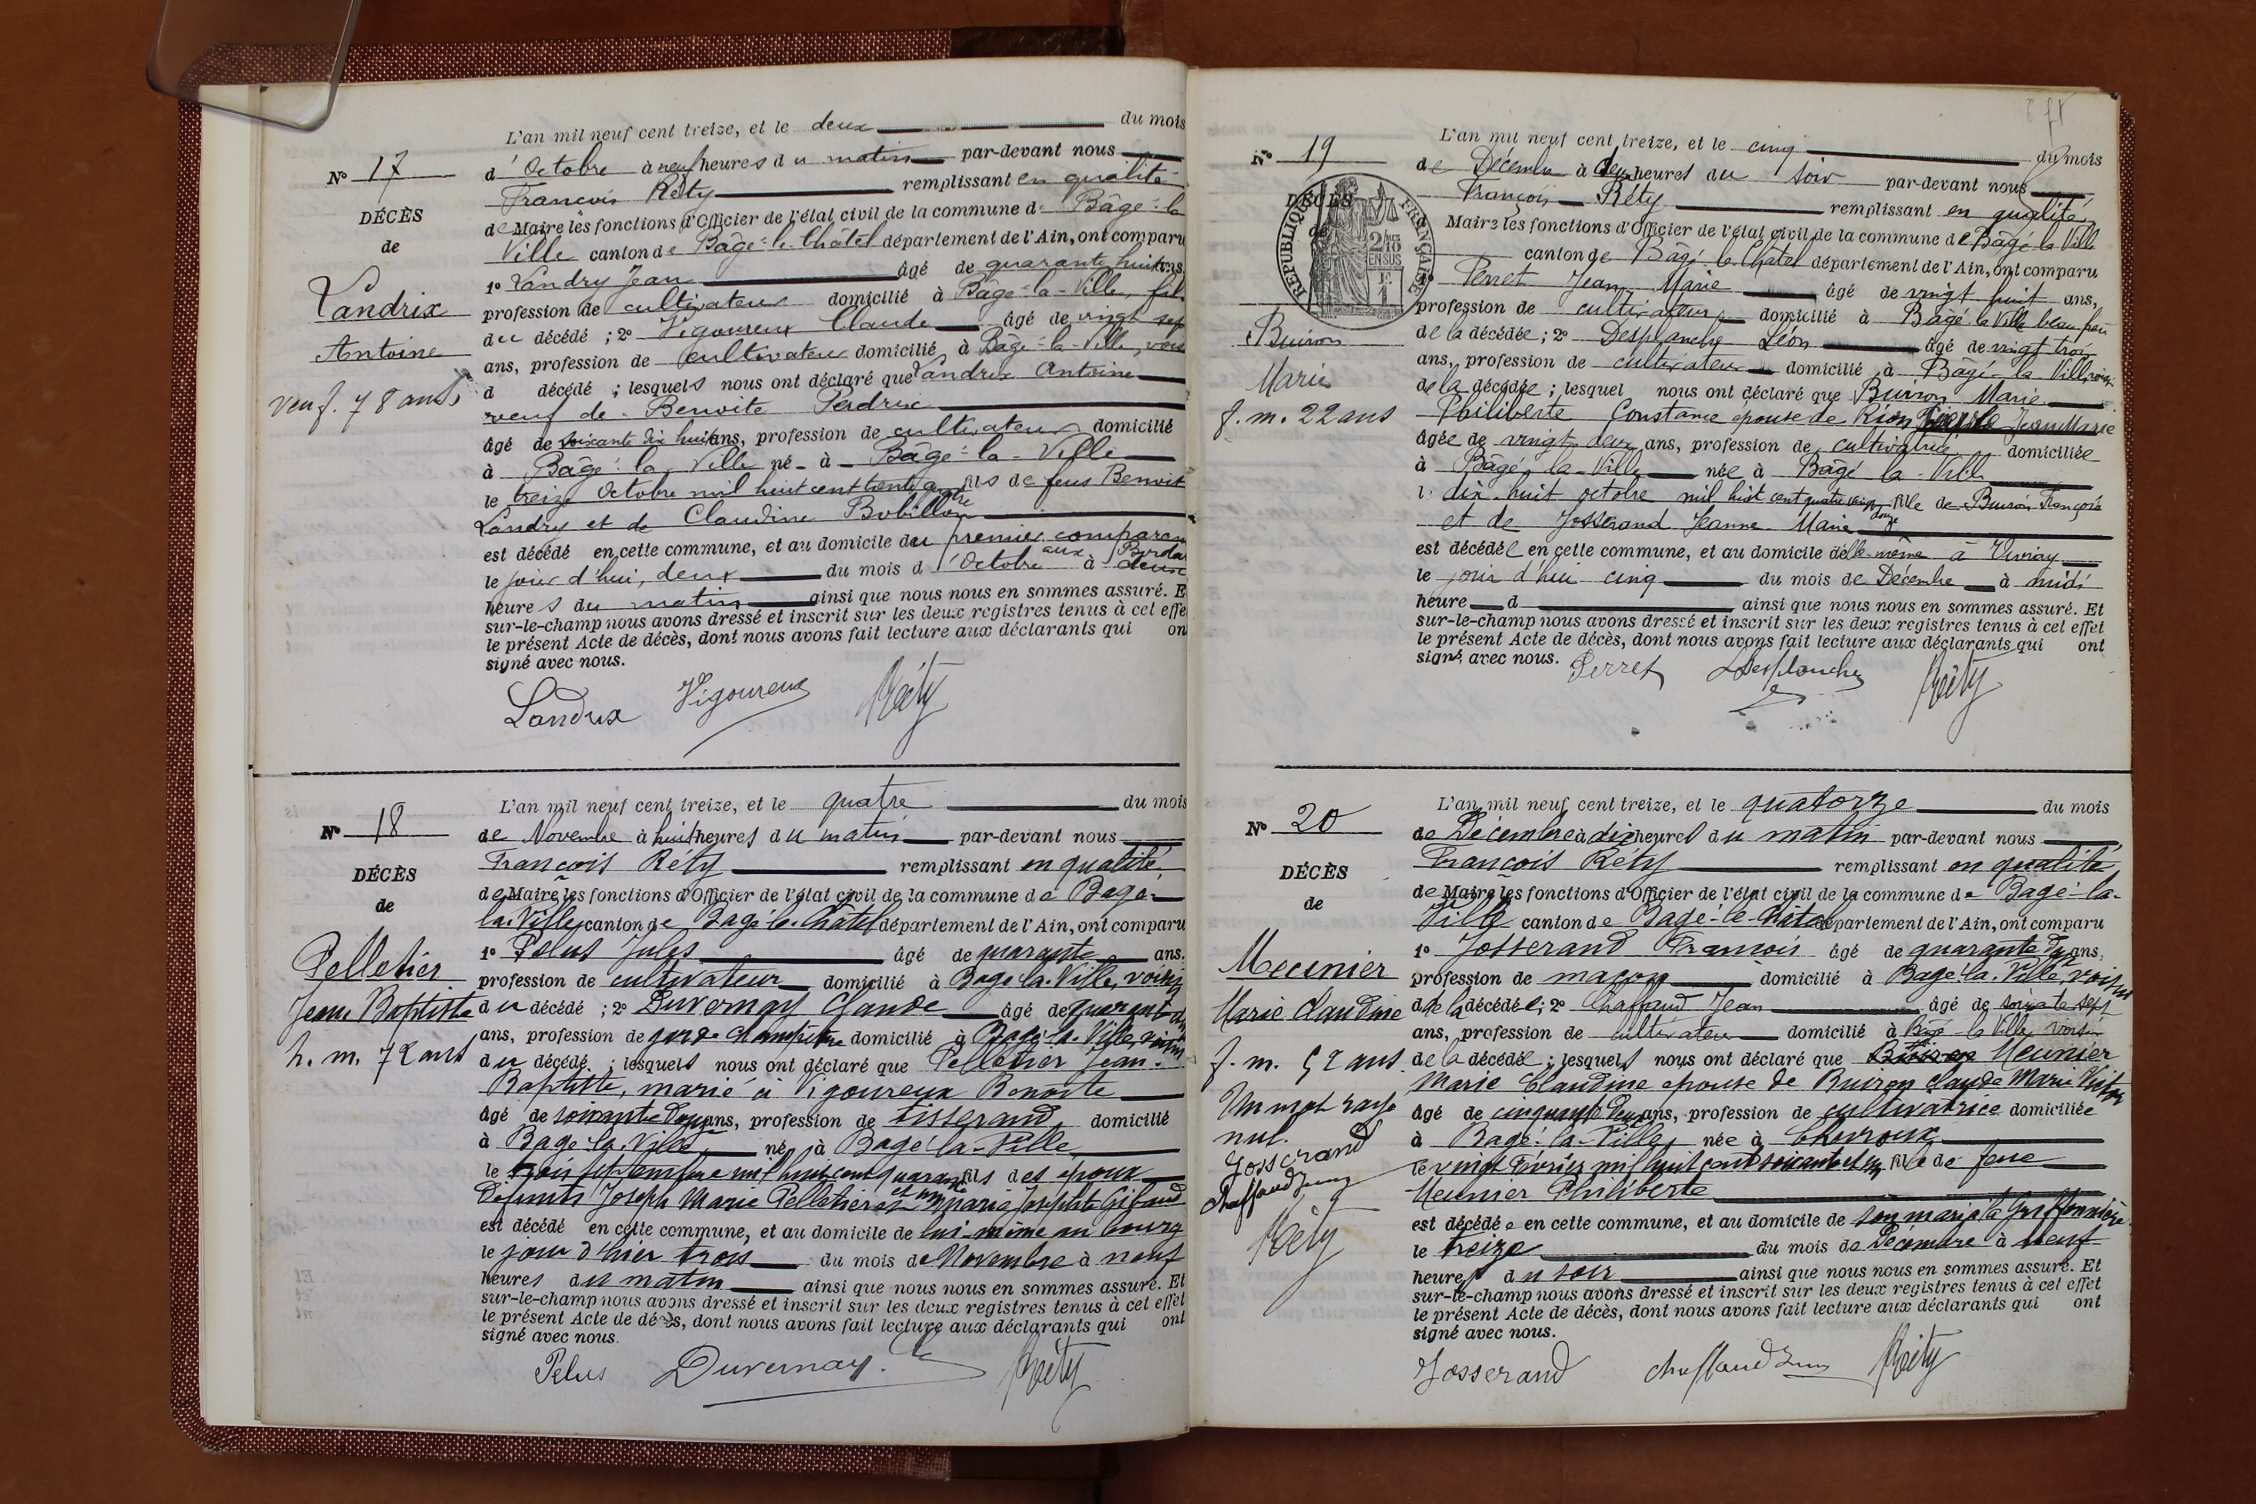 L'an mil neuf cent treize, et le deux du mois
N° 17
d'Octobre à neuf heures du matin par-devant nous
François Réty remplissant en qualité
DÉCÈS
de Maire les fonctions d'Officier de l'état civil de la commune de Bâgé-la
de
Ville canton de Bâgé-le-Châtel département de l'Ain, ont comparu
1° Landry Jean âgé de quarante huit ans
Landrix
profession de cultivateur domicilié à Bâgé-la-Ville, fils
du décédé ; 2° Vigoureux Claude âgé de vingt sept
Antoine
ans, profession de cultivateur domicilié à Bâgé-la-Ville, voisin
d décédé ; lesquels nous ont déclaré que Landrix Antoine
veuf. 78 ans
veuf de Benoite Perdrix
âgé de soixante dix huit ans, profession de cultivateur domicilié
à Bâgé-la-Ville né à Bâgé-la-Ville
le treize Octobre mil huit cent trente quatre fils de feus Benoit
Landry et de Claudine Bobillon
est décédé en cette commune, et au domicile du premier comparant
aux
le jour d'hui, deux du mois d'Octobre à deux
heures du matin ainsi que nous nous en sommes assuré. Et
sur-le-champ nous avons dressé et inscrit sur les deux registres tenus à cet effet
le présent Acte de décès, dont nous avons fait lecture aux déclarants qui ont
signé avec nous.
Landrix Vigoureux Réty
L'an mil neuf cent treize, et le quatre du mois
N° 18
de Novembre à huit heures du matin par-devant nous
François Réty remplissant en qualité
DÉCÈS
de Maire les fonctions d'Officier de l'état civil de la commune de Bagé-
de
la-Ville canton de Bagé-le-Châtel département de l'Ain, ont comparu
1° Pelus Jules âgé de quarante ans.
Pelletier
profession de cultivateur domicilié à Bagé-la-Ville, voisin
Jean Baptiste
du décédé ; 2° Duvernay Claude âgé de quarante
ans, profession de garde champêtre domicilié à Bagé-la-Ville voisin
h. m. 72 ans
du décédé ; lesquels nous ont déclaré que Pelletier Jean-
Baptiste, marié à Vigoureux Benoite
âgé de soixante douze ans, profession de tisserand domicilié
à Bagé-la-Ville né à Bagé-la-Ville
le trois septembre mil huit cent quarante fils des époux
et un
défunts Joseph Marie Pelletier et Marie Josephte Giband
est décédé en cette commune, et au domicile de lui-même au bourg
le jour d'hier trois du mois de Novembre à neuf
heures du matin ainsi que nous nous en sommes assuré. Et
sur-le-champ nous avons dressé et inscrit sur les deux registres tenus à cet effet
le présent Acte de décès, dont nous avons fait lecture aux déclarants qui ont
signé avec nous.
Pelus Duvernay Réty
L'an mil neuf cent treize, et le cinq du mois
N° 19
de Décembre à deux heures du soir par-devant nous
François Réty remplissant en qualité
DÉCÈS
de
Maire les fonctions d'Officier de l'état civil de la commune de Bâgé-la Ville
RÉPUBLIQUE FRANÇAISE
canton de Bâgé-le-Châtel département de l'Ain, ont comparu
Perret Jean Marie âgé de vingt huit ans,
profession de cultivateur domicilié à Bâgé-la Ville beau frère
Buiron
de la décédée ; 2° Desplanche Léon âgé de vingt trois
ans, profession de cultivateur domicilié à Bâgé-la-Ville voisin
Marie
de la décédée ; lesquel nous ont déclaré que Buiron Marie
f. m. 22 ans
Philiberte Constance épouse de Jean Marie
âgée de vingt deux ans, profession de cultivatrice domiciliée
à Bâgé-la-Ville née à Bâgé-la-Ville
le dix-huit octobre mil huit cent quatre vingt fille de Buiron François
douze
et de Josserand Jeanne-Marie
est décédée en cette commune, et au domicile d'elle-même à Viviay
le jour d'hui cinq du mois de Décembre à midi
heure d ainsi que nous nous en sommes assuré. Et
sur-le-champ nous avons dressé et inscrit sur les deux registres tenus à cet effet
le présent Acte de décès, dont nous avons fait lecture aux déclarants qui ont
signé avec nous.
Perret LDesplanche Réty
L'an mil neuf cent treize, et le quatorze du mois
N° 20
de Décembre à dix heures du matin par-devant nous
François Réty remplissant en qualité
DÉCÈS
de Maire les fonctions d'Officier de l'état civil de la commune de Bagé-la-
de
Ville canton de Bagé-le-Châtel département de l'Ain, ont comparu
1° Josserand François âgé de quarante ans,
Meunier
profession de maçon domicilié à Bagé-la-Ville, voisin
Marie Claudine
de la décédée ; 2° Chaffaud Jean âgé de soixante sept
ans, profession de cultivateur domicilié à Bâgé-la Ville voisin
f. m. 52 ans
de la décédée ; lesquels nous ont déclaré que Meunier
Marie Claudine épouse de Buiron Claude Marie Victor
Un mot rayé
âgé de cinquante deux ans, profession de cultivatrice domiciliée
nul.
à Bagé-la-Ville née à Chevroux
Josserand
le vingt Février mil huit cent soixante et un fille de feue
Chaffaud Jean
Meunier Philiberte
Réty
est décédée en cette commune, et au domicile de son mari à la Griffonnière
le treize du mois de Décembre à neuf
heures du soir ainsi que nous nous en sommes assuré. Et
sur-le-champ nous avons dressé et inscrit sur les deux registres tenus à cet effet
le présent Acte de décès, dont nous avons fait lecture aux déclarants qui ont
signé avec nous.
Josserand Chaffaud Jean Réty